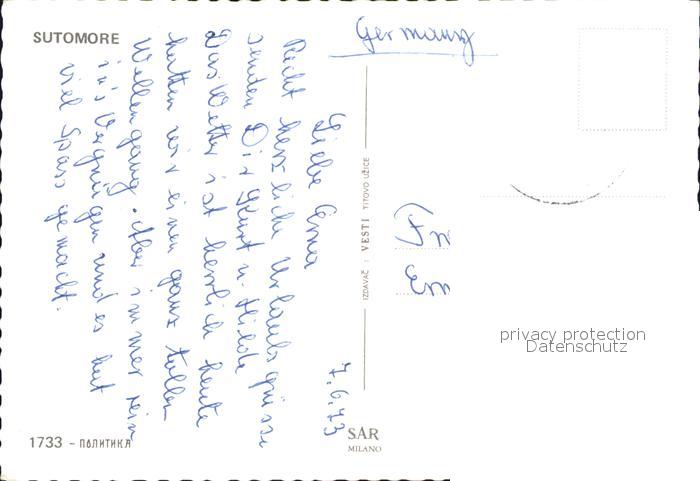 SUTOMORE
Germany
7.6.73
Liebe Erna
Recht herzliche Urlaubsgrüsse
senden Dir Kurt u. Hilde
Das Wetter ist herrlich heute
hatten wir einen ganz tollen
Wellengang. Aber immer rein
in's Vergnügen und es hat
viel Spass gemacht.
IZDAVAČ : VESTI TITOVO UŽICE
privacy protection
Datenschutz
1733 - ПОЛИТИКА
SAR
MILANO